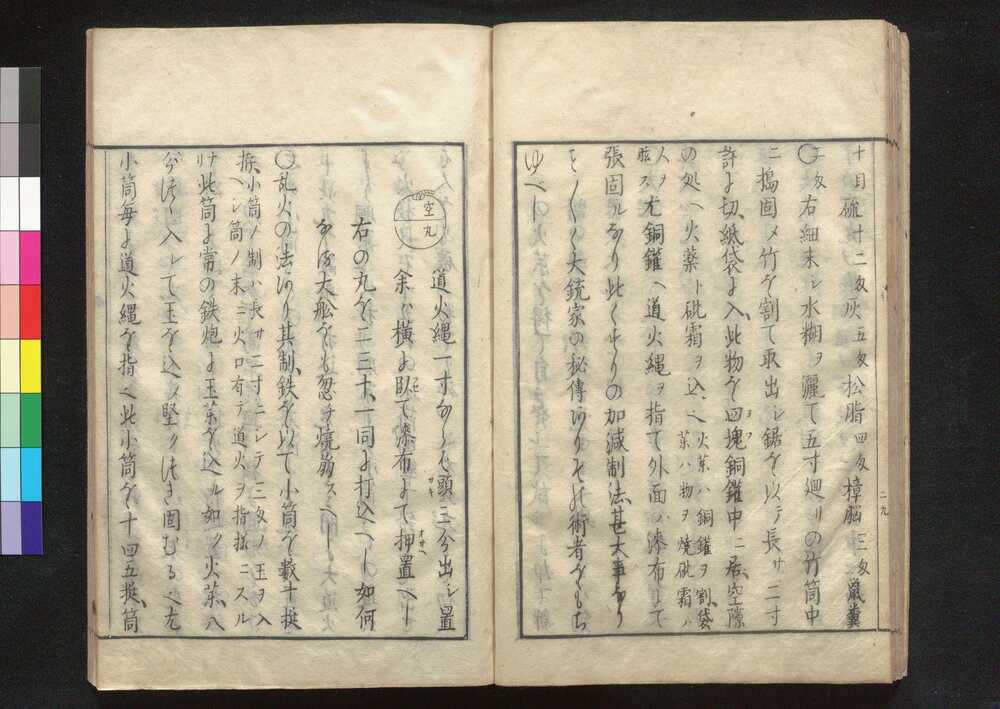 十目硫廿二匁灰五匁松脂四匁樟脳三匁鼠糞
二匁右細末シ水糊ヲ灑て五寸廻リの竹筒中
ニ搗固メ竹を割て取出シ鋸を以テ長サ二寸
許よ切紙袋よ入此物を四塊銅鑵中ニ居空隙
の処ヘ火薬ト砒霜ヲ込ヘ火薬ハ銅鑵ヲ割袋
薬ハ物ヲ焼砒霜ハ
人ヲ
ス尤銅鑵ヘ道火縄ヲ指て外面ハ漆布して
張固ルなり此くすりの加減制法甚大事なり
大銃家の秘傳ありその術者をもち
ゆべし
二九
空丸
道火縄一寸なら頭三分出シ置
余ハ横ニ臥て漆布よて押置べし
右の丸を二三十一同よ打込べし如何
なる大舩をも忽チ焼崩スべし
〇乱火の法あり其制鉄を以て小筒を数十挺
挨小筒ノ制ハ長サ二寸ニシテ三匁ノ玉ヲ入
ベシ筒ノ末ニ火口有テ道火ヲ指様ニスル
ナリ此筒よ常の鉄炮よ玉薬を込ル如ク火薬八
分ほと入レて玉を込メ堅くつき固むるべ尤
小筒毎よ道火縄を指べ此小筒を十四五挺筒